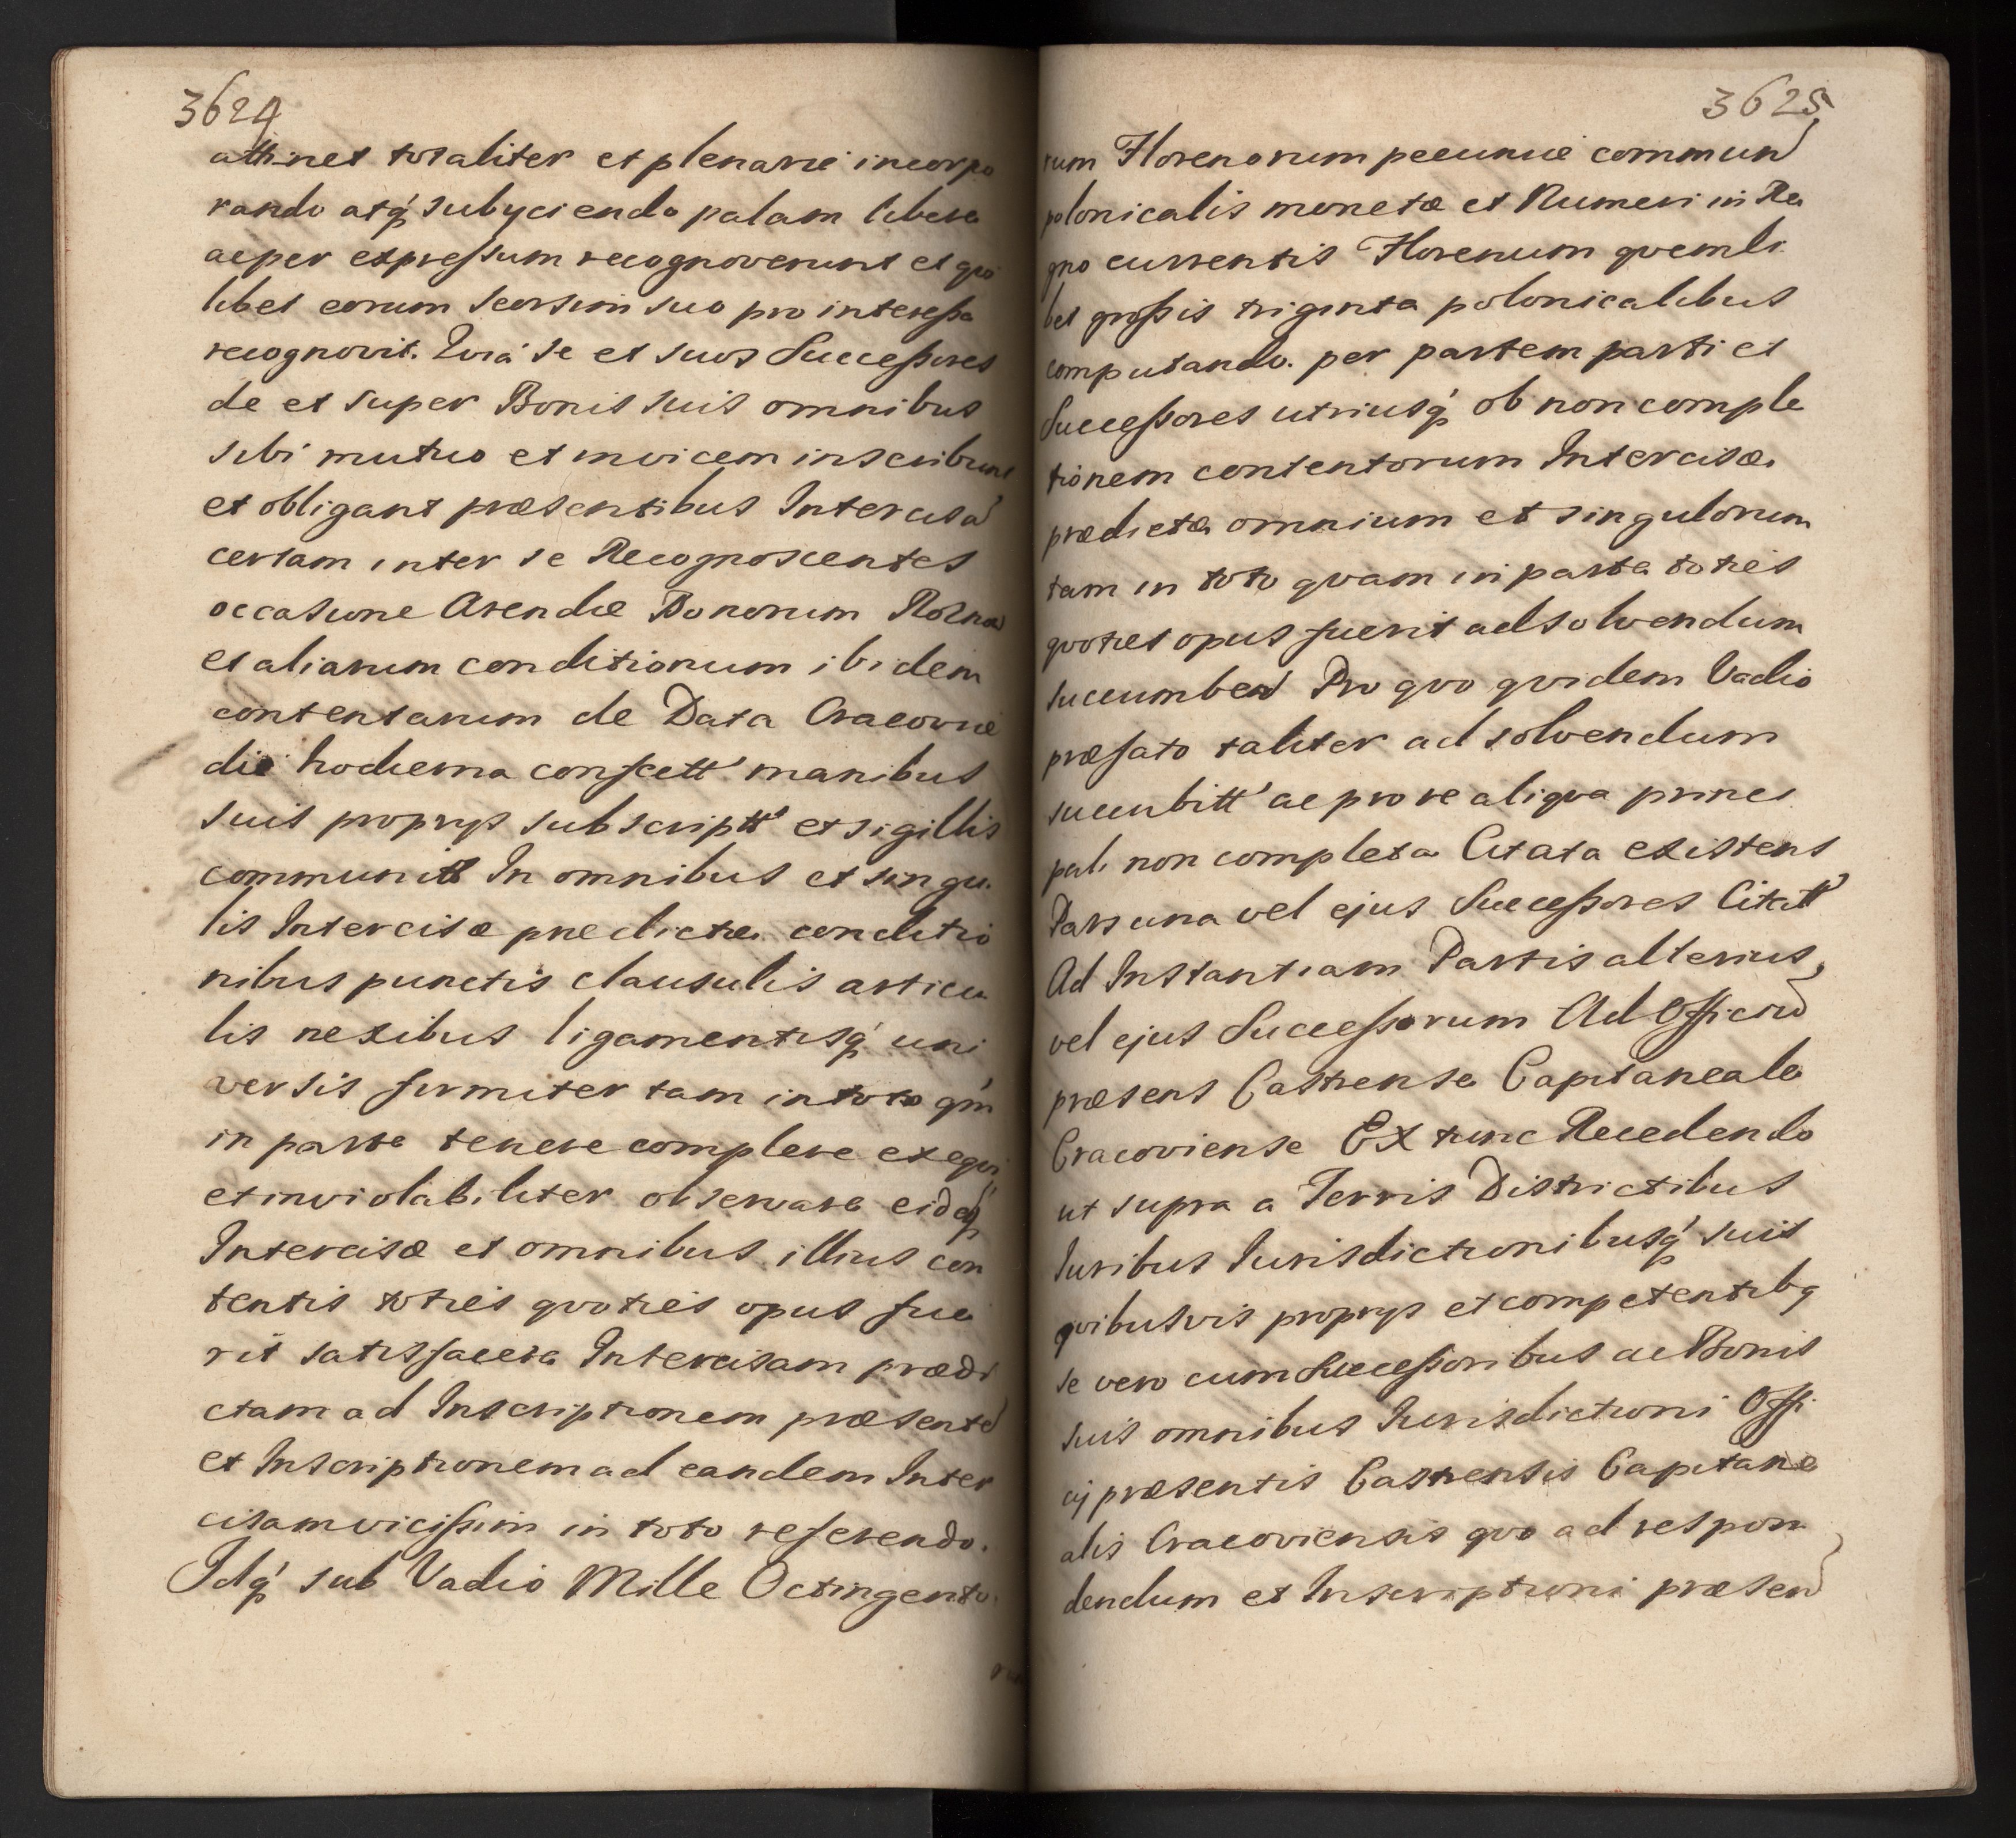 3624
attinet totaliter et plenarie incorpo
rando atq́ subyciendo palam libere
ac per expressum recognoverunt et qui
libet eorum seorsim suo pro interesse
recognovit. Quia se et suos Successores
de et super Bonis suis omnibus
sibi mutuo et invicem inscribunt
et obligant præsentibus Intercisa
certam inter se Recognoscentes
occasione Arendæ Bonorum
et aliarum conditionum ibidem
contentarum de Data Cracoviæ
die hodierna confectt manibus
suis proprys subscriptt et sigillis
communitt In omnibus et singu
lis Intercisæ prædictæ conditio
nibus punctis clausulis articu
lis nexibus ligamentisq́ uni
versis firmiter tam in toto qm
in parte tenere complere exequi
et inviolabiliter observare eidq́
Intercisæ et omnibus illius con
tentis toties quoties opus fue
rit satisfacere Intercisam prædi
ctam ad Inscriptionem præsente
et Inscriptionem ad eandem Inter
cisam vicissim in toto referendo.
Idq́ sub Vadio Mille Octingento
3625
rum Florenorum pecuniæ commun
polonicalis monetæ et Numeri in Re
gno currentis Florenum quemli
bet grossis triginta polonicalibus
computando. per partem parti et
Successores utriusq́ ob non comple
tionem contentorum Intercisæ
prædictæ omnium et singulorum
tam in toto quam in parte toties
quoties opus fuerit adsolvendum
succumben Pro quo quidem Vadio
præfato taliter ad solvendum
succubitt ac pro re aliqua princi
pali non completa Citata existens
Pars una vel ejus Successores Citatt
Ad Instantiam Partis alterius
vel ejus Successorum Ad Officiu
præsens Castrense Capitaneale
Cracoviense Ex tunc Recedendo
ut supra a Terris Districtibus
Iuribus Iurisdictionibusq́ suis
quibusvis proprys et competentibq
se vero cum Successoribus ac Bonis
suis omnibus Iurisdictioni Offi
cij præsentis Castrensis Capitane
alis Cracoviensis quo ad respon
dendum et Inscriptioni præsen